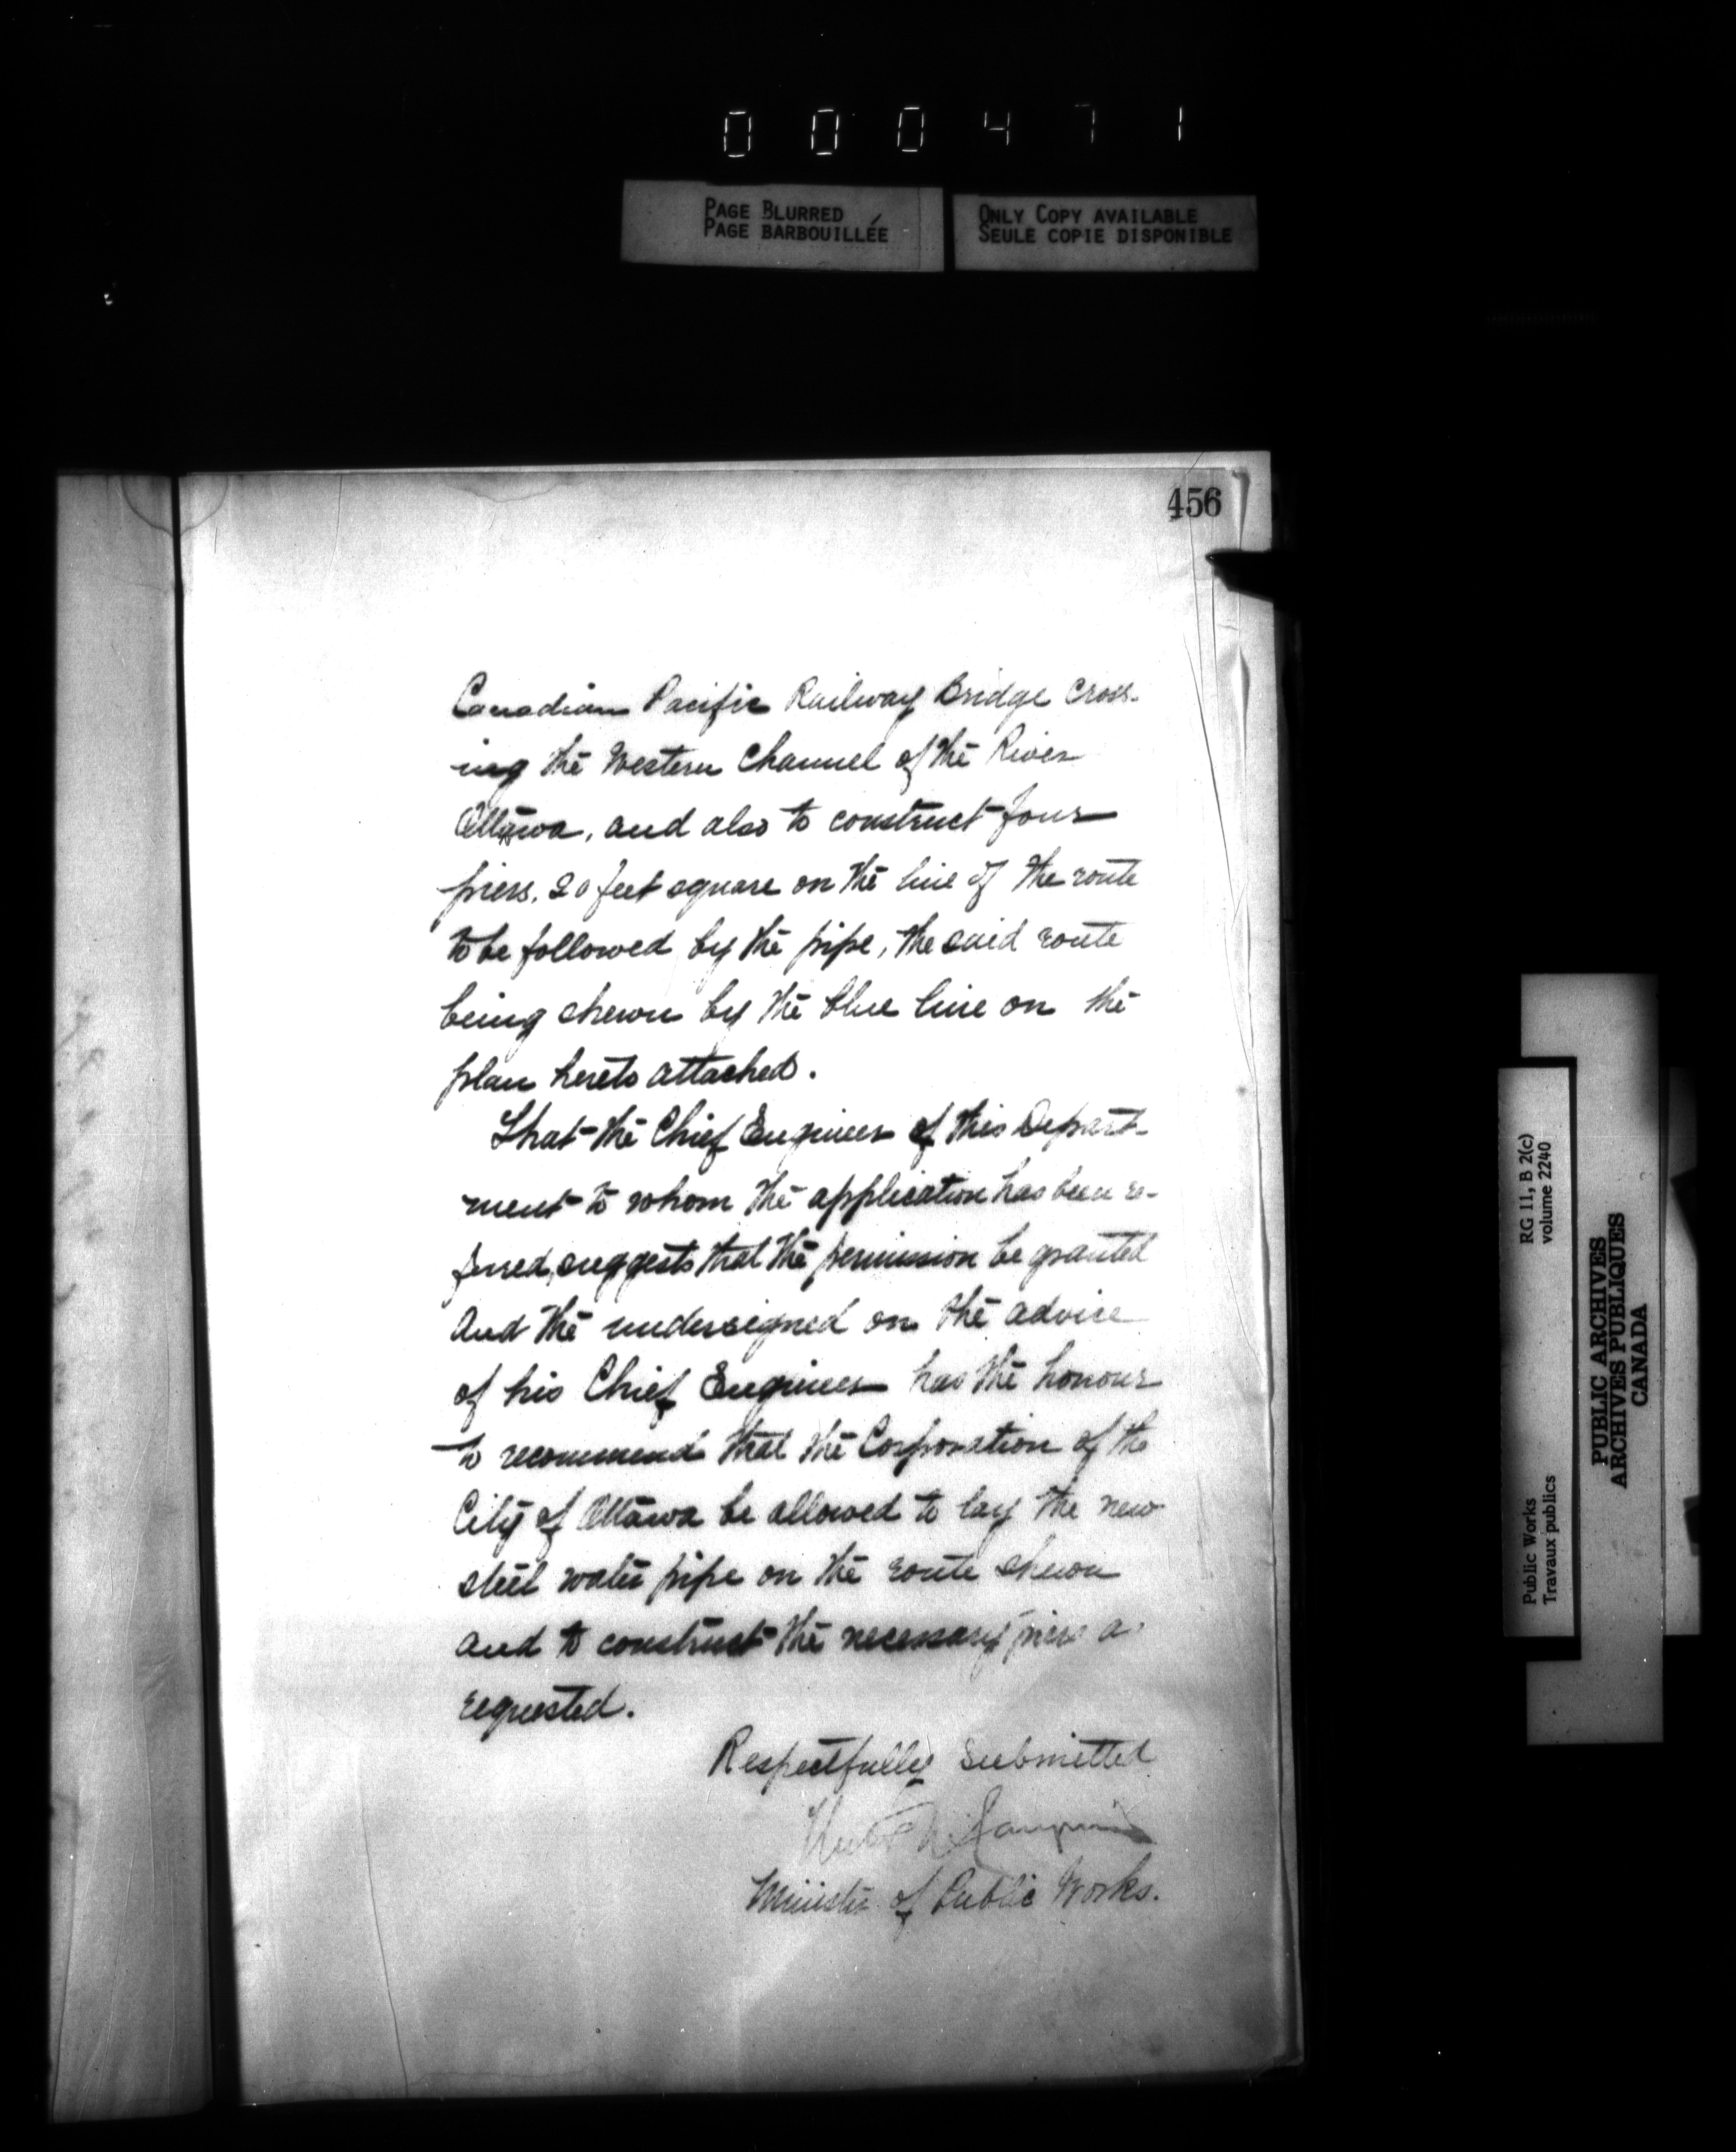 000471
PAGE BLURRED
PAGE BARBOUILLÉE
ONLY COPY AVAILABLE
SEULE COPIE DISPONIBLE
456
Canadian Pacific Railway Bridge cross-
ing the Western Channel of the River
Ottawa, and also to construct four
piers, 20 feet square on the line of the route
to be followed by the pipe, the said route
being shewn by the blue line on the
plan hereto attached.
That the Chief Engineer of this Depart-
ment to whom the application has been re-
ferred, suggests that the permission be granted
And the undersigned on the advice
of his Chief Engineer has the honour
to recommend that the Corporation of the
City of Ottawa be allowed to lay the new
steel water pipe on the route shewn
and to construct the necessary piers a
requested.
Respectfully Submitted
Minister of Public Works.
RG 11, B 2(c)
volume 2240
Public Works
Travaux publics
PUBLIC ARCHIVES
ARCHIVES PUBLIQUES
CANADA